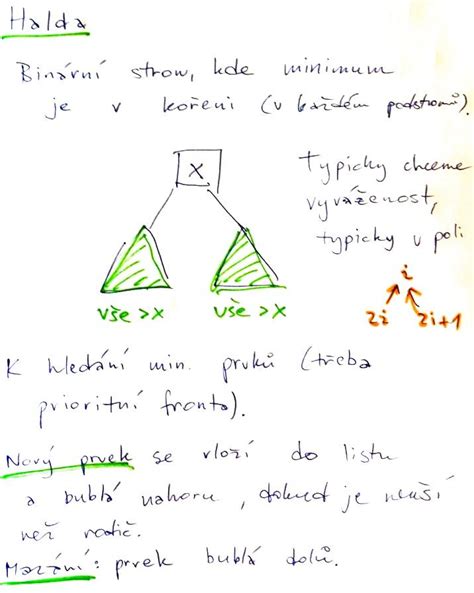 Halda
Binární strom, kde minimum
je v kořeni (v každém podstromů).
X
Typicky chceme
vyváženost,
typicky v poli
i
2i 2i+1
vše >X vše >X
K hledání min. prvků (třeba
prioritní fronta).
Nový prvek se vloží do listu
a bublá nahoru, dokud je menší
než rodič.
Mazání: prvek bublá dolů.